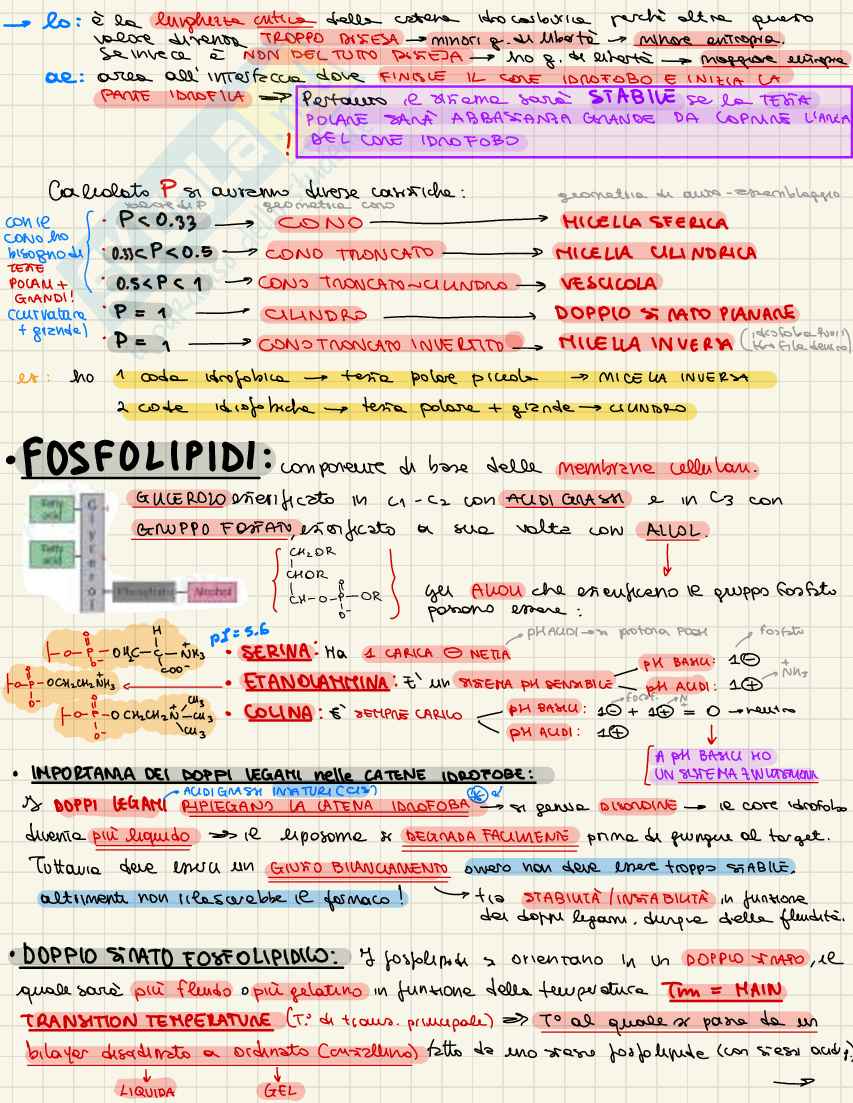 → lo: è la lunghezza critica della catena idrocarburica perché oltre questo
valore diventa TROPPO DISTESA → minori g. di libertà → minore entropia.
Se invece è NON DEL TUTTO DISTESA → ho g. di libertà → maggiore entropia
ae: area all'interfaccia dove FINISCE IL CORE IDROFOBO E INIZIA LA
PARTE IDROFILA ⇒ Pertanto il sistema sarà STABILE se la TESTA
POLARE SARÀ ABBASTANZA GRANDE DA COPRIRE L'AREA
! DEL CORE IDROFOBO
Calcolato P si avranno diverse casistiche:
valore di P geometria cono geometria di auto-assemblaggio
• P < 0.33 → CONO → MICELLA SFERICA
• 0.33 < P < 0.5 → CONO TRONCATO → MICELLA CILINDRICA
• 0.5 < P < 1 → CONO TRONCATO-CILINDRO → VESCICOLA
• P = 1 → CILINDRO → DOPPIO STRATO PLANARE
• P = 1 → CONO TRONCATO INVERTITO → MICELLA INVERSA (idrofoba fuori
idrofila dentro)
con il
CONO ho
bisogno di
TESTE
POLARI +
GRANDI!
(curvatura
+ grande)
es: ho 1 coda idrofobica → testa polare piccola → MICELLA INVERSA
2 code idrofobiche → testa polare + grande → CILINDRO
• FOSFOLIPIDI: componente di base delle membrane cellulari.
GLICEROLO esterificato in C1-C2 con ACIDI GRASSI e in C3 con
GRUPPO FOSFATO, esterificato a sua volta con ALCOL.
Fatty
acid
Fatty
acid
Glycerol
Phosphate
Alcohol
CH2OR
CHOR
CH-O-P-OR
O
O-
Gli ALCOLI che esterificano il gruppo fosfato
possono essere:
pI = 5.6
pH ACIDI → si protona
-O-P-OH2C-C-NH3+
O
O-
H
COO-
• SERINA: Ha 1 CARICA ⊖ NETTA
-O-P-OCH2CH2NH3+
O
O-
• ETANOLAMMINA: È un SISTEMA pH SENSIBILE
pH BASICI: 1⊖ fosfato
pH ACIDI: 1⊕ +NH3
-O-P-OCH2CH2N+
O
O-
CH3
CH3
CH3
• COLINA: È SEMPRE CARICO
pH BASICI: 1⊖ + 1⊕ = 0 → neutro
pH ACIDI: 1⊕
A pH BASICI HO
UN SISTEMA ZWITTERION
• IMPORTANZA DEI DOPPI LEGAMI nelle CATENE IDROFOBE:
→ ACIDI GRASSI INSATURI (CIS)
I DOPPI LEGAMI RIPIEGANO LA CATENA IDROFOBA → si genera DISORDINE → il core idrofobo
diventa più liquido ⇒ il liposoma si DEGRADA FACILMENTE prima di giungere al target.
Tuttavia deve esserci un GIUSTO BILANCIAMENTO ovvero non deve essere troppo STABILE,
altrimenti non rilascerebbe il farmaco!
→ tra STABILITÀ/INSTABILITÀ in funzione
dei doppi legami, dunque della fluidità.
• DOPPIO STRATO FOSFOLIPIDICO: I fosfolipidi si orientano in un DOPPIO STRATO, il
quale sarà più fluido o più gelatino in funzione della temperatura Tm = MAIN
TRANSITION TEMPERATURE (T° di trans. principale) ⇒ T° al quale si passa da un
bilayer disordinato a ordinato (cristallino) fatto da uno stesso fosfolipide (con stessi acidi
↓ LIQUIDA
↓ GEL
→